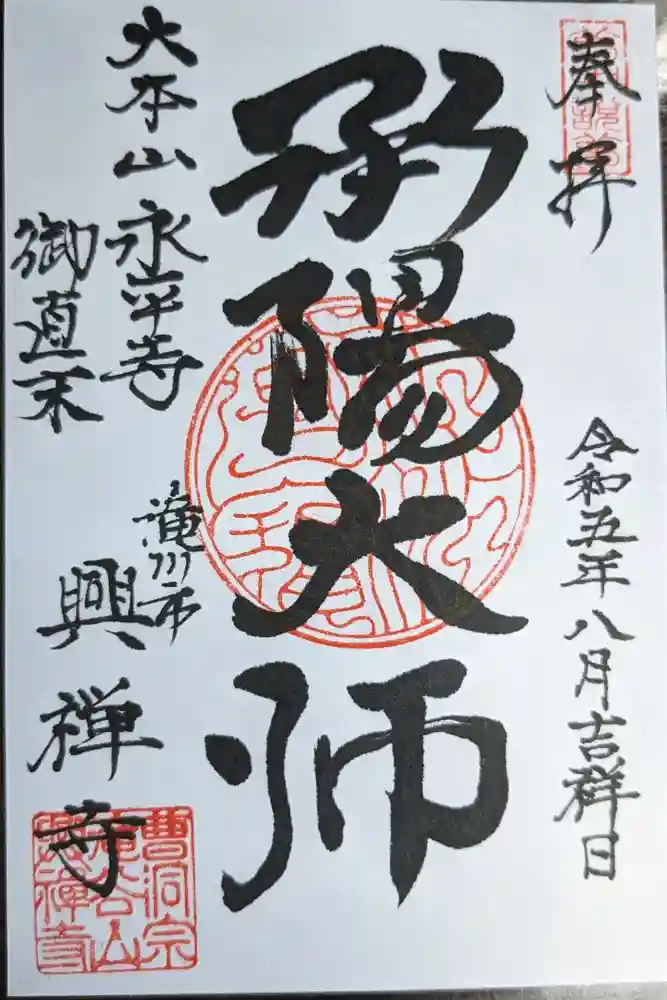 奉拝
令和五年八月吉祥日
承陽大师
大本山永平寺
御直末
滝川市
興禅寺
曹洞宗
滝谷山
興禅寺